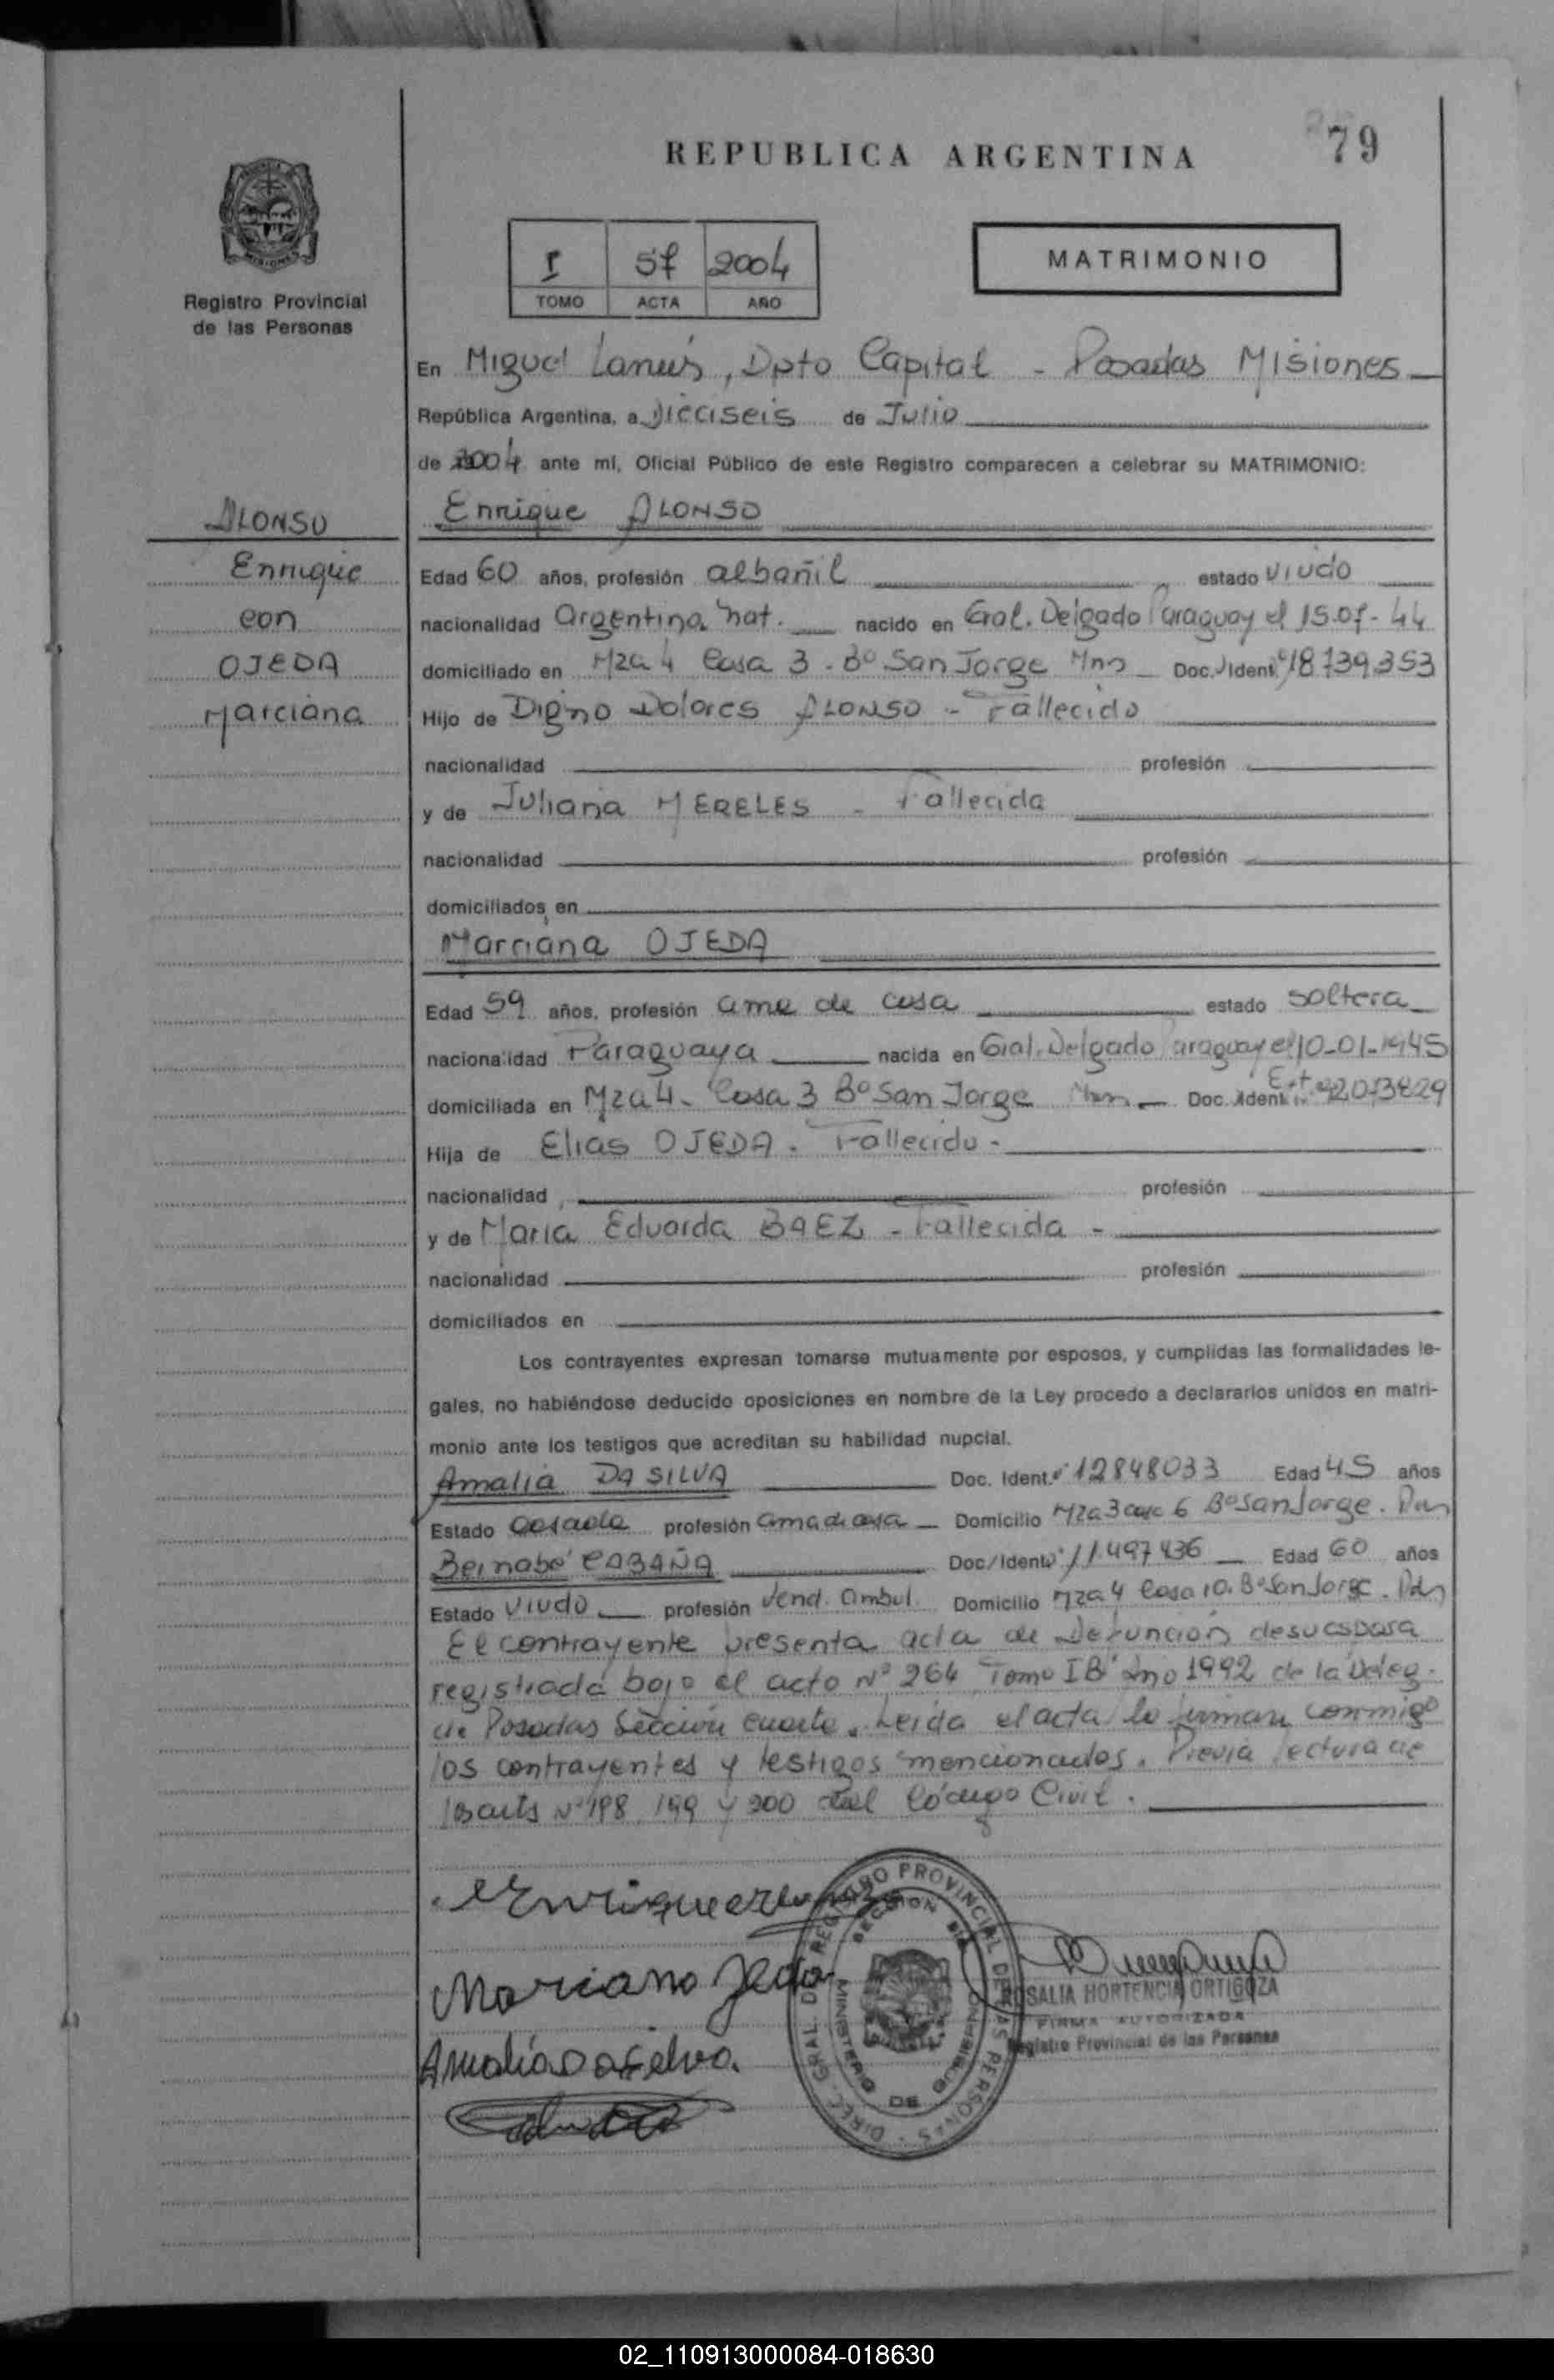 REPUBLICA ARGENTINA
79
Registro Provincial
de las Personas
I 57 2004
TOMO ACTA AÑO
MATRIMONIO
En Miguel Lanús, Dpto Capital - Posadas Misiones
República Argentina, a Dieciseis de Julio
de 2004 ante mí, Oficial Público de este Registro comparecen a celebrar su MATRIMONIO:
ALONSO
Enrique
con
OJEDA
Marciana
Enrique ALONSO
Edad 60 años, profesión albañil estado viudo
nacionalidad Argentina nat. nacido en Gral. Delgado Paraguay el 15-07-44
domiciliado en Mza 4 Casa 3 - Bº San Jorge Mns Doc. Ident. 18.739.353
Hijo de Digno Dolores ALONSO - Fallecido
nacionalidad profesión
y de Juliana MERELES - Fallecida
nacionalidad profesión
domiciliados en
Marciana OJEDA
Edad 59 años, profesión ama de casa estado soltera
nacionalidad Paraguaya nacida en Gral. Delgado Paraguay el 10-01-1945
domiciliada en Mza 4 - Casa 3 Bº San Jorge Mns Doc. Ident. Ext.
Hija de Elias OJEDA - Fallecido -
nacionalidad profesión
y de Maria Eduarda BAEZ - Fallecida -
nacionalidad profesión
domiciliados en
Los contrayentes expresan tomarse mutuamente por esposos, y cumplidas las formalidades le-
gales, no habiéndose deducido oposiciones en nombre de la Ley procedo a declararlos unidos en matri-
monio ante los testigos que acreditan su habilidad nupcial.
Amalia DA SILVA Doc. Ident. 12848033 Edad 45 años
Estado casada profesión ama de casa Domicilio Mza 3 casa 6 Bº San Jorge. Pdas
Bernabé CABAÑA Doc/Ident. 11.497436 Edad 60 años
Estado viudo profesión Vend. Ambul. Domicilio Mza 4 Casa 10. Bº San Jorge. Pdas
El contrayente presenta acta de Defunción de su esposa
registrada bajo el acta Nº 264 Tomo IB Año 1992 de la Deleg.
de Posadas Sección cuarta. Leida el acta la firman conmigo
los contrayentes y testigos mencionados. Previa lectura de
los arts Nº 198 199 y 200 del Código Civil.
Enrique Alonso
Marciano Jeda
Amalia Da Silva.
DIREC. GRAL. DEL REGISTRO PROVINCIAL DE LAS PERSONAS
MINISTERIO DE GOBIERNO
ROSALIA HORTENCIA ORTIGOZA
FIRMA AUTORIZADA
Registro Provincial de las Personas
02_110913000084-018630